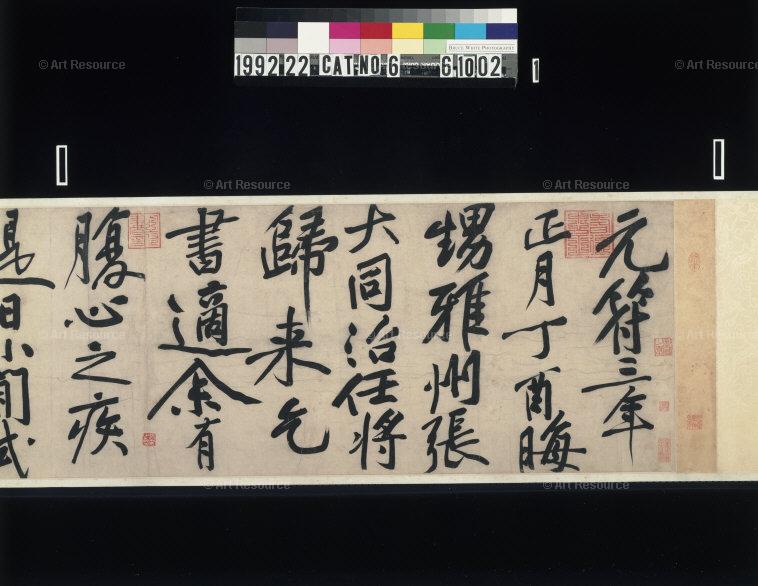 1992.22 CAT-NO-6 6.1002 1
BRUCE WHITE PHOTOGRAPHY
© Art Resource
© Art Resource
© Art Resource
© Art Resource
元符三年
正月丁酉晦
甥雅州張
大同治任將
歸来乞
書適余有
腹心之疾
是日小閒試
© Art Resource
© Art Resource
© Art Resource
© Art Resource
© Art Resource